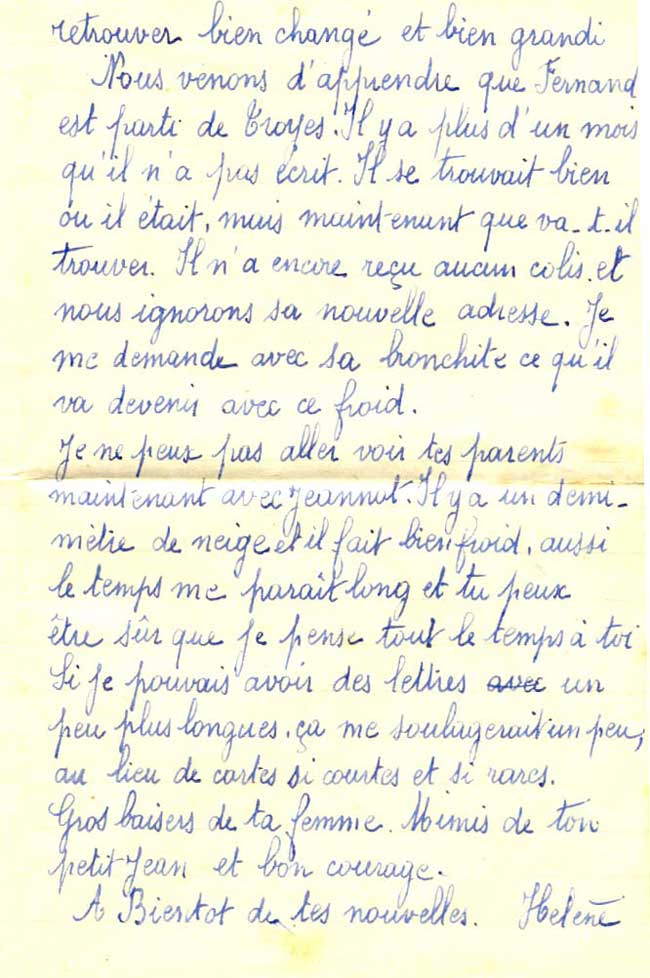 retrouver bien changé et bien grandi
Nous venons d'apprendre que Fernand
est parti de Troyes. Il y a plus d'un mois
qu'il n'a pas écrit. Il se trouvait bien
ou il était, mais maintenant que va-t-il
trouver. Il n'a encore reçu aucun colis et
nous ignorons sa nouvelle adresse. Je
me demande avec sa bronchite ce qu'il
va devenir avec ce froid.
Je ne peux pas aller voir tes parents
maintenant avec Jeannot. Il y a un demi-
mètre de neige et il fait bien froid, aussi
le temps me paraît long et tu peux
être sûr que je pense tout le temps à toi
Si je pouvais avoir des lettres avec un
peu plus longues, ça me soulagerait un peu,
au lieu de cartes si courtes et si rares.
Gros baisers de ta femme. Mimis de ton
petit Jean et bon courage.
A Bientot de tes nouvelles. Helene